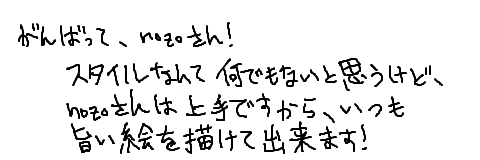 がんばって、nozoさん!
スタイルなんて何でもないと思うけど、
nozoさんは上手ですから、いつも
旨い絵を描けて出来ます!